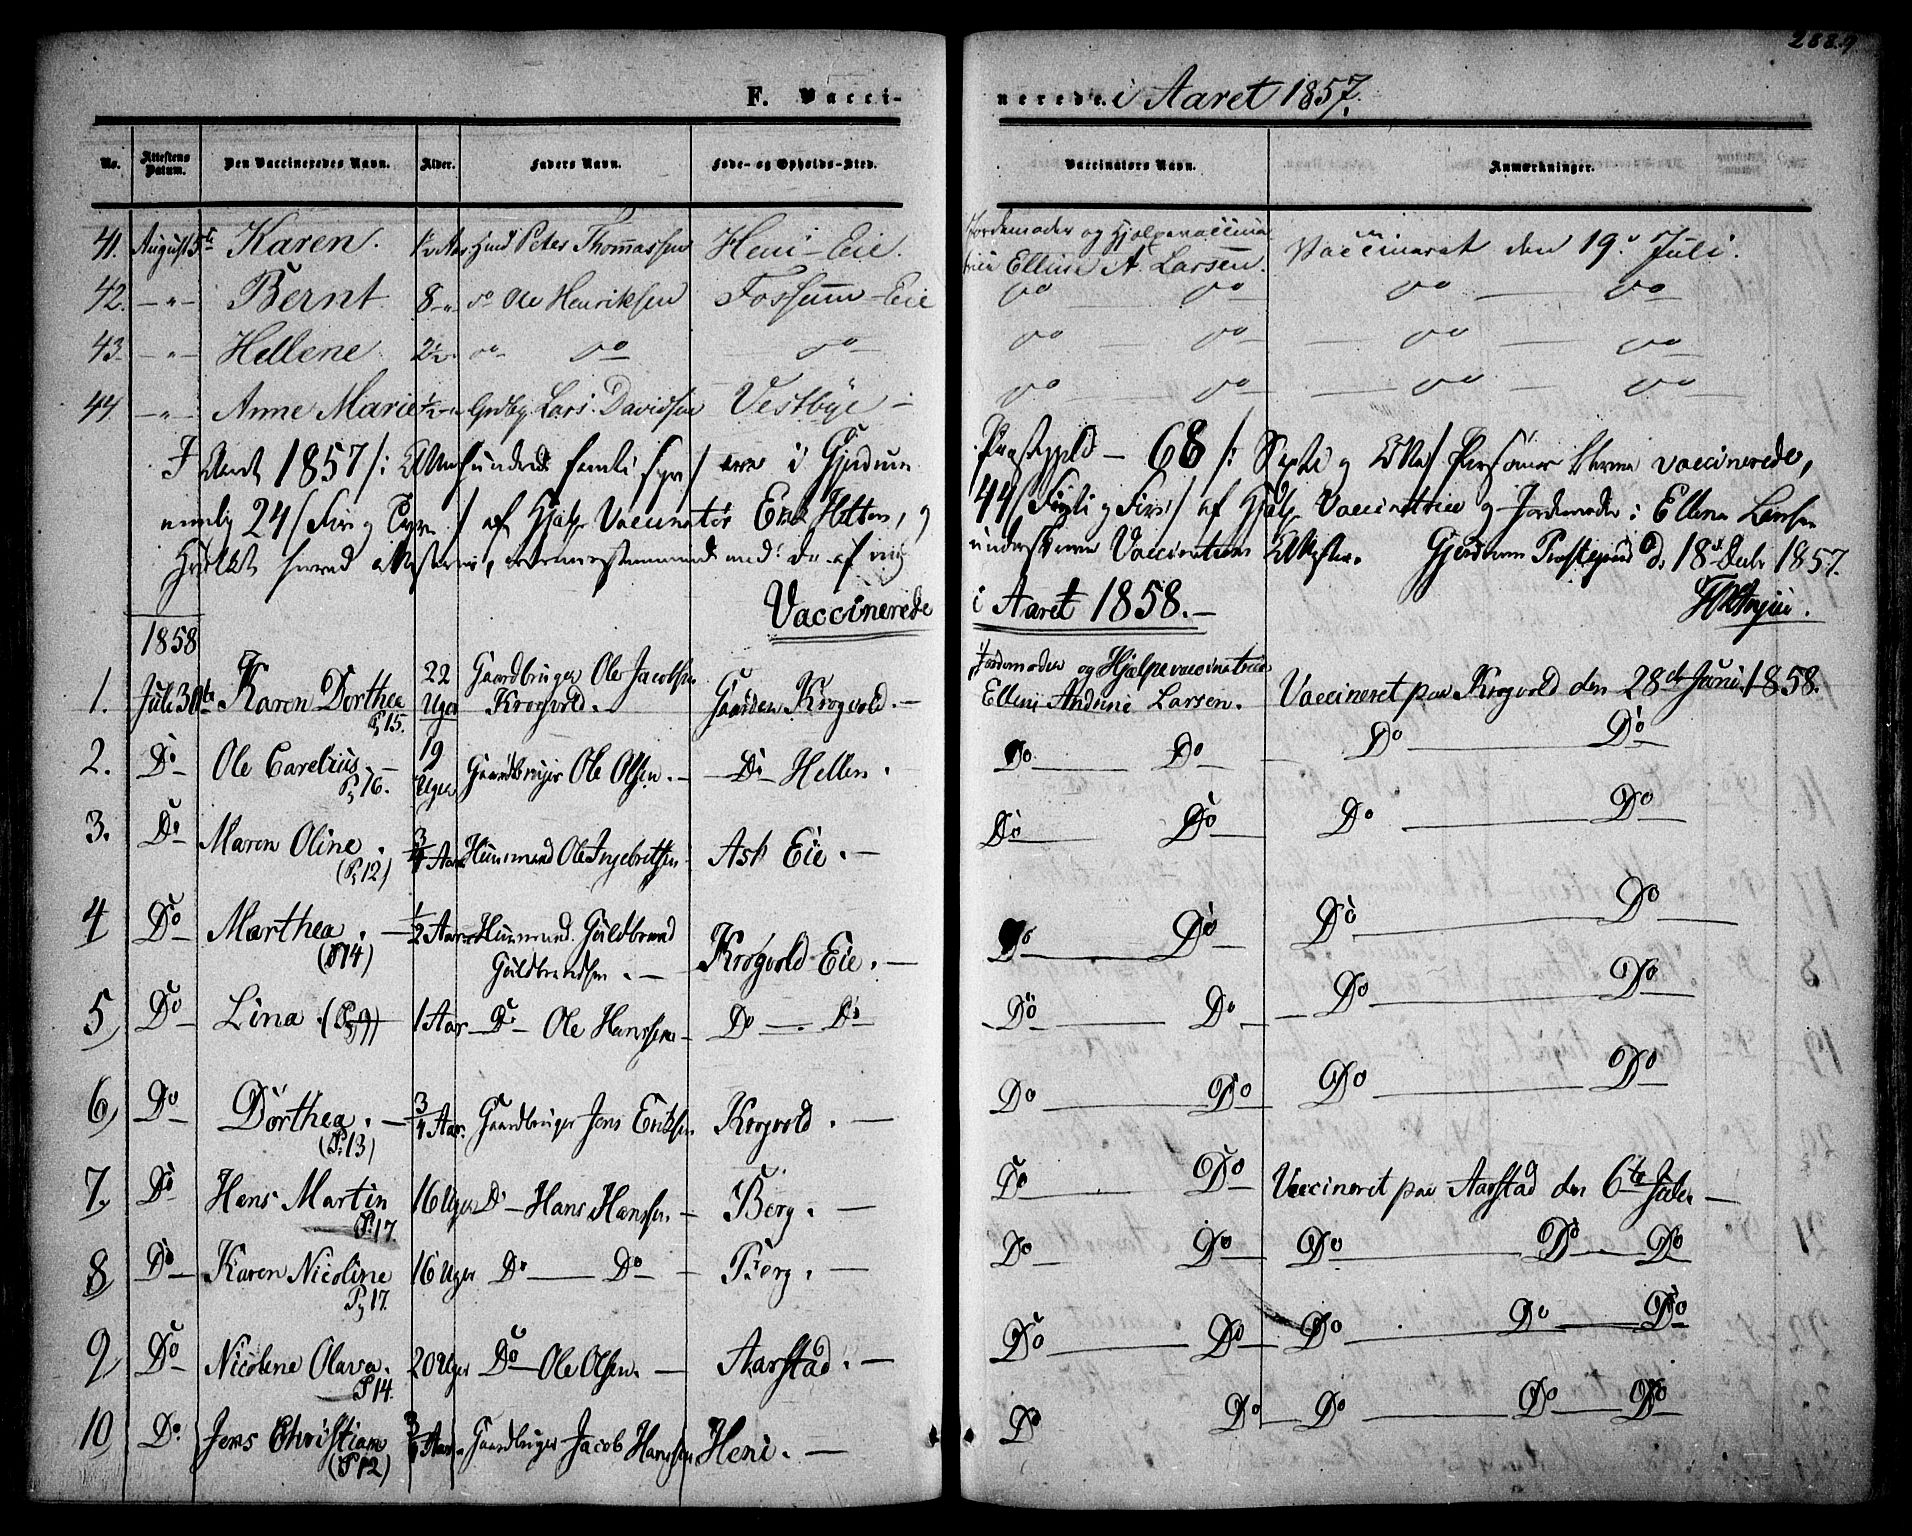 288.
F. Vacci-
nerede. i Aaret 1857.
No. Attestens Datum. Den Vaccineredes Navn. Alder. Faders Navn. Føde- og Opholds-Sted.
Vaccinators Navn. Anmærkninger.
41. August 5te Karen. 1½ Aar Husd Peter Thomassen Heni-Eie.
Jordemoder og Hjelpevaccina-
trice Elline A. Larsen. Vaccineret den 19de Juli.
42. —„— Bernt 8 „ do Ole Henriksen Fossum-Eie
do do do do
43. —„— Hellene 2½ do do do
do do do do
44. —„— Anne Marie ½ „ Grdbg Lars Davidsen Vestbye —
do do do do
I Aaret 1857 /: / ere i Gjerdrum
Præstegjeld — 68 /: Sexti og Otte / Personer blevne vaccinerede,
nemlig 24 / Fire og Tyve / af Hjelpe Vaccinatør Erik Hetten, og
44 / Firti og Fire / af Hjelpe Vaccinatrice og Jordemoder: Elline Larsen
Hvilket herved attesteres, overensstemmende med de af mig
underskrevne Vaccinations Attester. Gjerdrum Præstegaard d. 18de Decbr 1857.
Vaccinerede
i Aaret 1858. —
1858
1. Juli 30te Karen Dorthea P 15. 22 Uger Gaardbruger Ole Jacobsen Krogvold. Gaarden Krogvold. —
Jordemoder og Hjælpevaccinatrice
Elline Andrine Larsen. Vaccineret paa Krogvold den 28de Juni 1858.
2. Do Ole Carelius. — Pg 16. 19 Uger Gaardbruger Ole Olsen. — Do Hellen.
Do Do Do Do
3. Do Maren Oline. (Pg 12) 3/4 Aar Huusmand Ole Ingebretsen Ask Eie. —
Do Do Do Do
4 Do Marthea. — (P 14) 1/2 Aar Huusmand Guldbrand Guldbrandsen. — Krogvold-Eie. —
Do Do Do Do
5 Do Lina. (Pg 9) 1 Aar Do — Ole Hanssen — Do — Do
Do Do Do Do
6 Do Dorthea. — (P. 13) 3/4 Aar. Gaardbruger Jens Eriksen Krogvold. —
Do Do Do Do
7 Do Hans Martin P. 17. 16 Uger Do — Hans Hanssen. — Berg. —
Do Do Vaccineret paa Aarstad den 6te Julii —
8 Do Karen Nicoline Pg 17. 16 Uger Do — Do — Berg. —
Do Do Do Do Do
9 Do Nicoline Olava. P 14. 20 Uger Do — Ole Olsen. — Aarstad. —
Do Do Do Do Do
10 Do. Jens Christian (P 12) 3/4 Aar Gaardbruger Jacob Hanssen Heni. —
Do Do Do Do Do